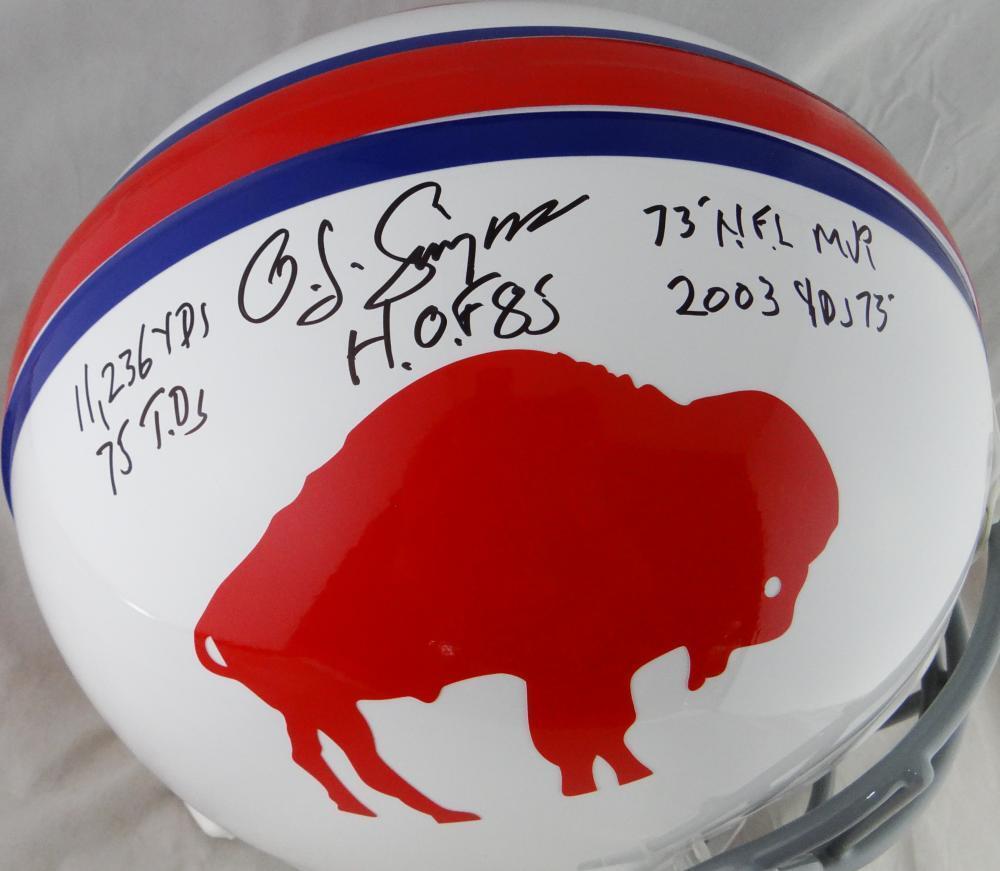 O.J. Simpson
H.O.F 85
11,236 YDS
75 T.Ds
73' N.F.L M.V.P
2003 YDS 73'